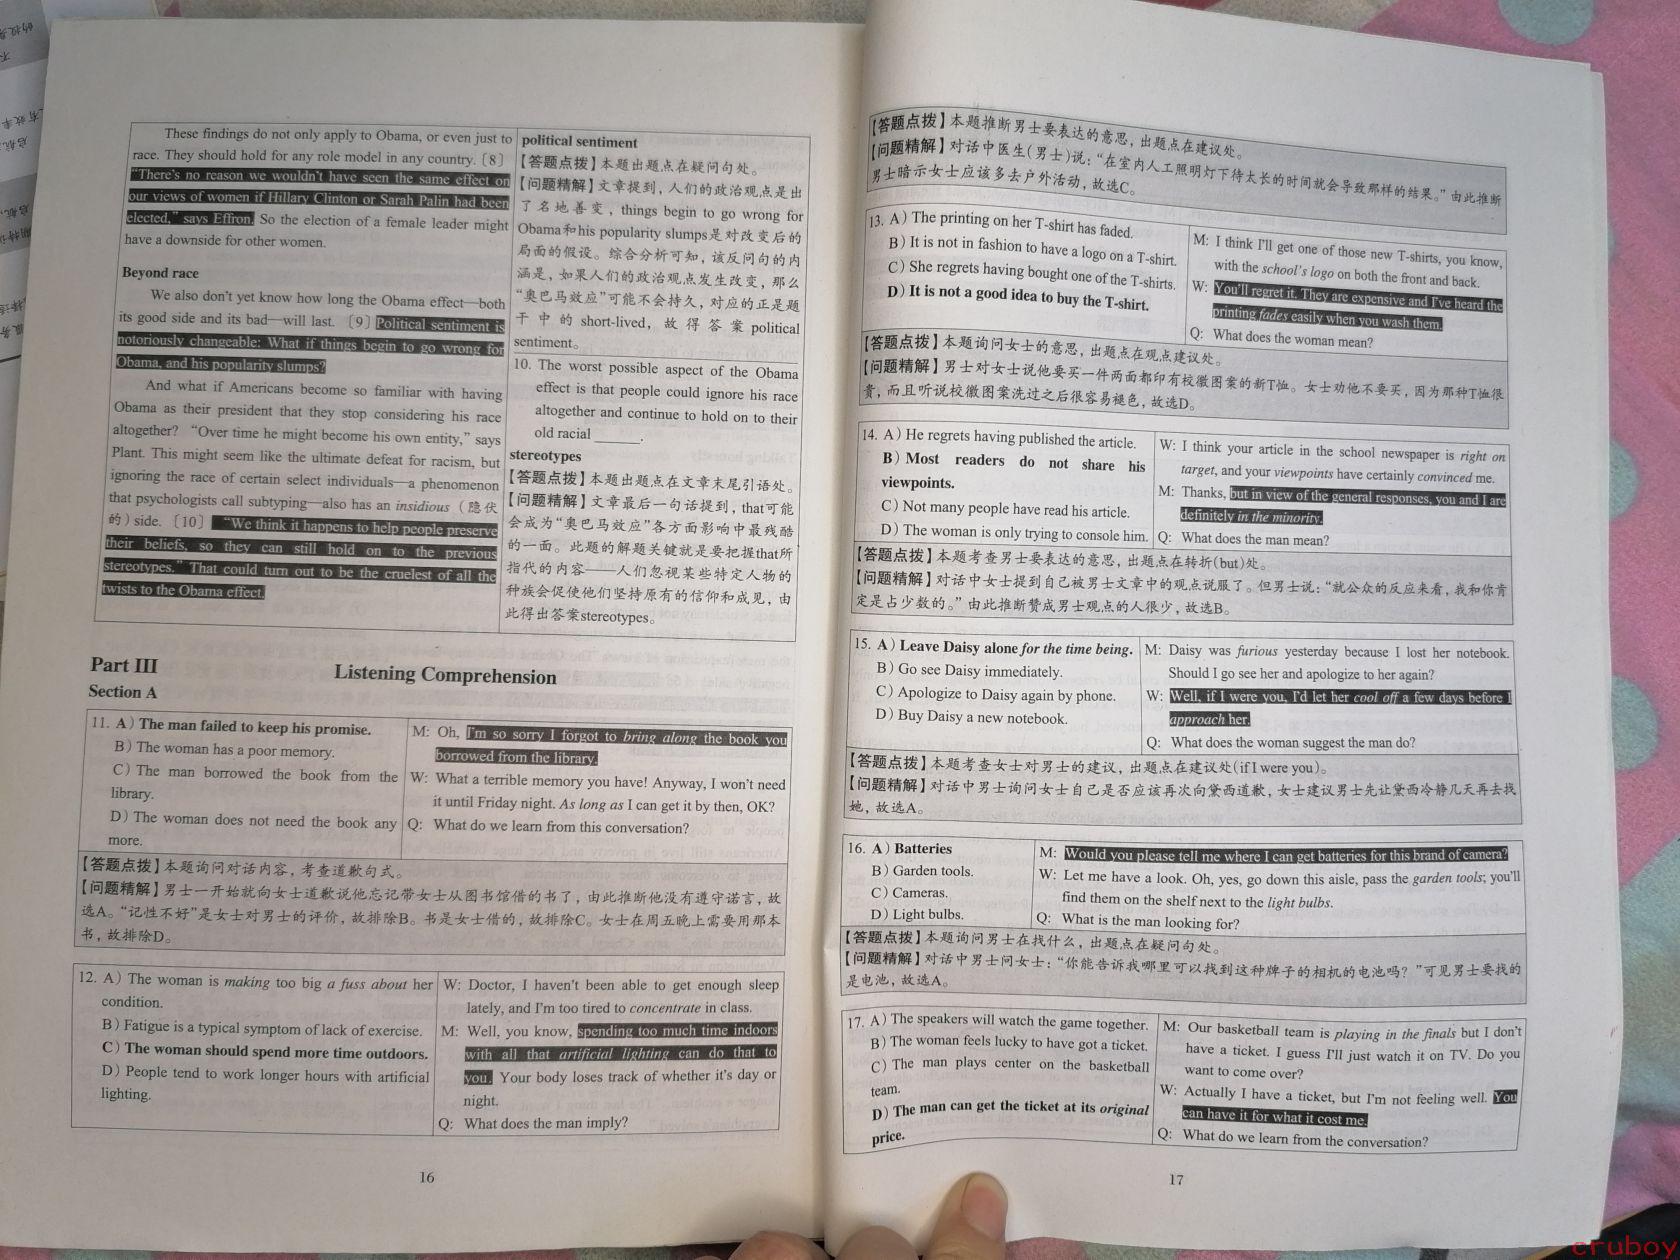 These findings do not only apply to Obama, or even just to
race. They should hold for any role model in any country.〔8〕
“There’s no reason we wouldn’t have seen the same effect on
our views of women if Hillary Clinton or Sarah Palin had been
elected,” says Effron. So the election of a female leader might
have a downside for other women.
Beyond race
We also don’t yet know how long the Obama effect—both
its good side and its bad—will last.〔9〕Political sentiment is
notoriously changeable: What if things begin to go wrong for
Obama, and his popularity slumps?
And what if Americans become so familiar with having
Obama as their president that they stop considering his race
altogether? “Over time he might become his own entity,” says
Plant. This might seem like the ultimate defeat for racism, but
ignoring the race of certain select individuals—a phenomenon
that psychologists call subtyping—also has an insidious（隐伏
的）side.〔10〕“We think it happens to help people preserve
their beliefs, so they can still hold on to the previous
stereotypes.” That could turn out to be the cruelest of all the
twists to the Obama effect.
political sentiment
【答题点拨】本题出题点在疑问句处。
【问题精解】文章提到，人们的政治观点是出
了名地善变，things begin to go wrong for
Obama和his popularity slumps是对改变后的
局面的假设。综合分析可知，该反问句的内
涵是，如果人们的政治观点发生改变，那么
“奥巴马效应”可能不会持久，对应的正是题
干中的short-lived，故得答案political
sentiment。
10. The worst possible aspect of the Obama
effect is that people could ignore his race
altogether and continue to hold on to their
old racial ______.
stereotypes
【答题点拨】本题出题点在文章末尾引语处。
【问题精解】文章最后一句话提到，that可能
会成为“奥巴马效应”各方面影响中最残酷
的一面。此题的解题关键就是要把握that所
指代的内容——人们忽视某些特定人物的
种族会促使他们坚持原有的信仰和成见，由
此得出答案stereotypes。
Part III
Listening Comprehension
Section A
11. A) The man failed to keep his promise.
B) The woman has a poor memory.
C) The man borrowed the book from the
library.
D) The woman does not need the book any
more.
M: Oh, I’m so sorry I forgot to bring along the book you
borrowed from the library.
W: What a terrible memory you have! Anyway, I won’t need
it until Friday night. As long as I can get it by then, OK?
Q: What do we learn from this conversation?
【答题点拨】本题询问对话内容，考查道歉句式。
【问题精解】男士一开始就向女士道歉说他忘记带女士从图书馆借的书了，由此推断他没有遵守诺言，故
选A。“记性不好”是女士对男士的评价，故排除B。书是女士借的，故排除C。女士在周五晚上需要用那本
书，故排除D。
12. A) The woman is making too big a fuss about her
condition.
B) Fatigue is a typical symptom of lack of exercise.
C) The woman should spend more time outdoors.
D) People tend to work longer hours with artificial
lighting.
W: Doctor, I haven’t been able to get enough sleep
lately, and I’m too tired to concentrate in class.
M: Well, you know, spending too much time indoors
with all that artificial lighting can do that to
you. Your body loses track of whether it’s day or
night.
Q: What does the man imply?
16
【答题点拨】本题推断男士要表达的意思，出题点在建议处。
【问题精解】对话中医生(男士)说：“在室内人工照明灯下待太长的时间就会导致那样的结果。”由此推断
男士暗示女士应该多去户外活动，故选C。
13. A) The printing on her T-shirt has faded.
B) It is not in fashion to have a logo on a T-shirt.
C) She regrets having bought one of the T-shirts.
D) It is not a good idea to buy the T-shirt.
M: I think I’ll get one of those new T-shirts, you know,
with the school’s logo on both the front and back.
W: You’ll regret it. They are expensive and I’ve heard the
printing fades easily when you wash them.
Q: What does the woman mean?
【答题点拨】本题询问女士的意思，出题点在观点建议处。
【问题精解】男士对女士说他要买一件两面都印有校徽图案的新T恤。女士劝他不要买，因为那种T恤很
贵，而且听说校徽图案洗过之后很容易褪色，故选D。
14. A) He regrets having published the article.
B) Most readers do not share his
viewpoints.
C) Not many people have read his article.
D) The woman is only trying to console him.
W: I think your article in the school newspaper is right on
target, and your viewpoints have certainly convinced me.
M: Thanks, but in view of the general responses, you and I are
definitely in the minority.
Q: What does the man mean?
【答题点拨】本题考查男士要表达的意思，出题点在转折(but)处。
【问题精解】对话中女士提到自己被男士文章中的观点说服了。但男士说：“就公众的反应来看，我和你肯
定是占少数的。”由此推断赞成男士观点的人很少，故选B。
15. A) Leave Daisy alone for the time being.
B) Go see Daisy immediately.
C) Apologize to Daisy again by phone.
D) Buy Daisy a new notebook.
M: Daisy was furious yesterday because I lost her notebook.
Should I go see her and apologize to her again?
W: Well, if I were you, I’d let her cool off a few days before I
approach her.
Q: What does the woman suggest the man do?
【答题点拨】本题考查女士对男士的建议，出题点在建议处(if I were you)。
【问题精解】对话中男士询问女士自己是否应该再次向黛西道歉，女士建议男士先让黛西冷静几天再去找
她，故选A。
16. A) Batteries
B) Garden tools.
C) Cameras.
D) Light bulbs.
M: Would you please tell me where I can get batteries for this brand of camera?
W: Let me have a look. Oh, yes, go down this aisle, pass the garden tools; you’ll
find them on the shelf next to the light bulbs.
Q: What is the man looking for?
【答题点拨】本题询问男士在找什么，出题点在疑问句处。
【问题精解】对话中男士问女士：“你能告诉我哪里可以找到这种牌子的相机的电池吗？”可见男士要找的
是电池，故选A。
17. A) The speakers will watch the game together.
B) The woman feels lucky to have got a ticket.
C) The man plays center on the basketball
team.
D) The man can get the ticket at its original
price.
M: Our basketball team is playing in the finals but I don’t
have a ticket. I guess I’ll just watch it on TV. Do you
want to come over?
W: Actually I have a ticket, but I’m not feeling well. You
can have it for what it cost me.
Q: What do we learn from the conversation?
17
cruboy